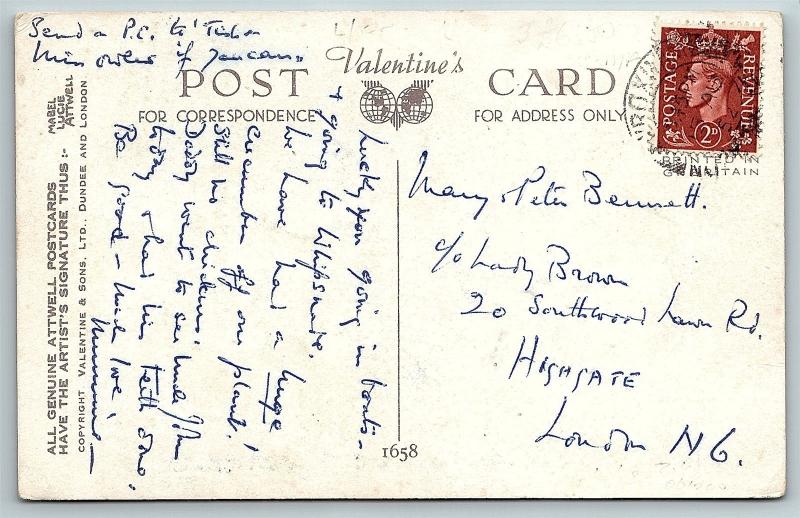 Send a P.C. to
Miss if you can.
POST Valentine's CARD
FOR CORRESPONDENCE FOR ADDRESS ONLY
Lucky you going in boats -
& going to Whipsnade.
We have had a huge
cucumber off our plant!
Still no chickens!
Daddy went to see Uncle John
today & had his teeth done.
Be good - much love,
Mummie
ALL GENUINE ATTWELL POSTCARDS
HAVE THE ARTIST'S SIGNATURE THUS :-
MABEL
LUCIE
ATTWELL
COPYRIGHT VALENTINE & SONS, LTD., DUNDEE AND LONDON
1658
POSTAGE REVENUE
2D
PRINTED IN
GT BRITAIN
Mary & Peter Bennett.
c/o Lady Brown
20 Southwood Lawn Rd.
HIGHGATE
London N6.